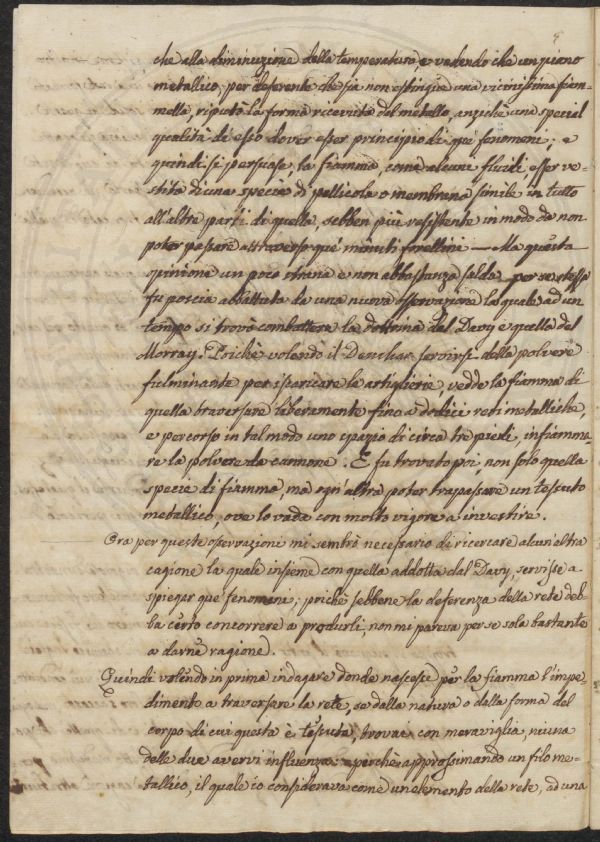 che alla diminuzione della temperatura, e vedendo che un piano
metallico, per deferente che sia non estingue una vicinissima fiam-
mella, riputò la forma ricevuta dal metallo, anziché una special
qualità di esso dover esser principio di que' fenomeni; e
quindi si persuase, la fiamma, come alcuni fluidi, esser ve-
stita di una specie di pellicola o membrana simile in tutto
all'altre parti di quella, sebben più resistente in modo da non
poter passare attraverso que' minuti forellini — Ma questa
opinione un poco strana e non abbastanza salda per se stessa
fu poscia abbattuta da una nuova osservazione la quale ad un
tempo si trovò combattere la dottrina del Davy e quella del
Morray. Poichè volendo il servirsi della polvere
fulminante per iscaricare le artiglierie, vedde la fiamma di
quella traversare liberamente fino a dodici reti metalliche,
e percorso in tal modo uno spazio di circa tre piedi, infiamma-
re la polvere da cannone. E fu trovato poi, non solo quella
specie di fiamma, ma ogn'altra poter trapassare un tessuto
metallico, ove lo vada con molto vigore a investire.
Ora per queste osservazioni mi sembrò necessario di ricercare alcun'altra
cagione la quale insieme con quella addotta dal Davy, servisse a
spiegar que' fenomeni; poichè sebbene la deferenza della rete deb-
ba certo concorrere a produrli, non mi pareva per se sola bastante
a darne ragione.
Quindi volendo in prima indagare donde nascesse per la fiamma l'impe-
dimento a traversare la rete, se dalla natura o dalla forma del
corpo di cui questa è tessuta, trovai con meraviglia, niuna
delle due avervi influenza: perchè approssimando un filo me-
tallico, il quale io considerava come un elemento della rete, ad una